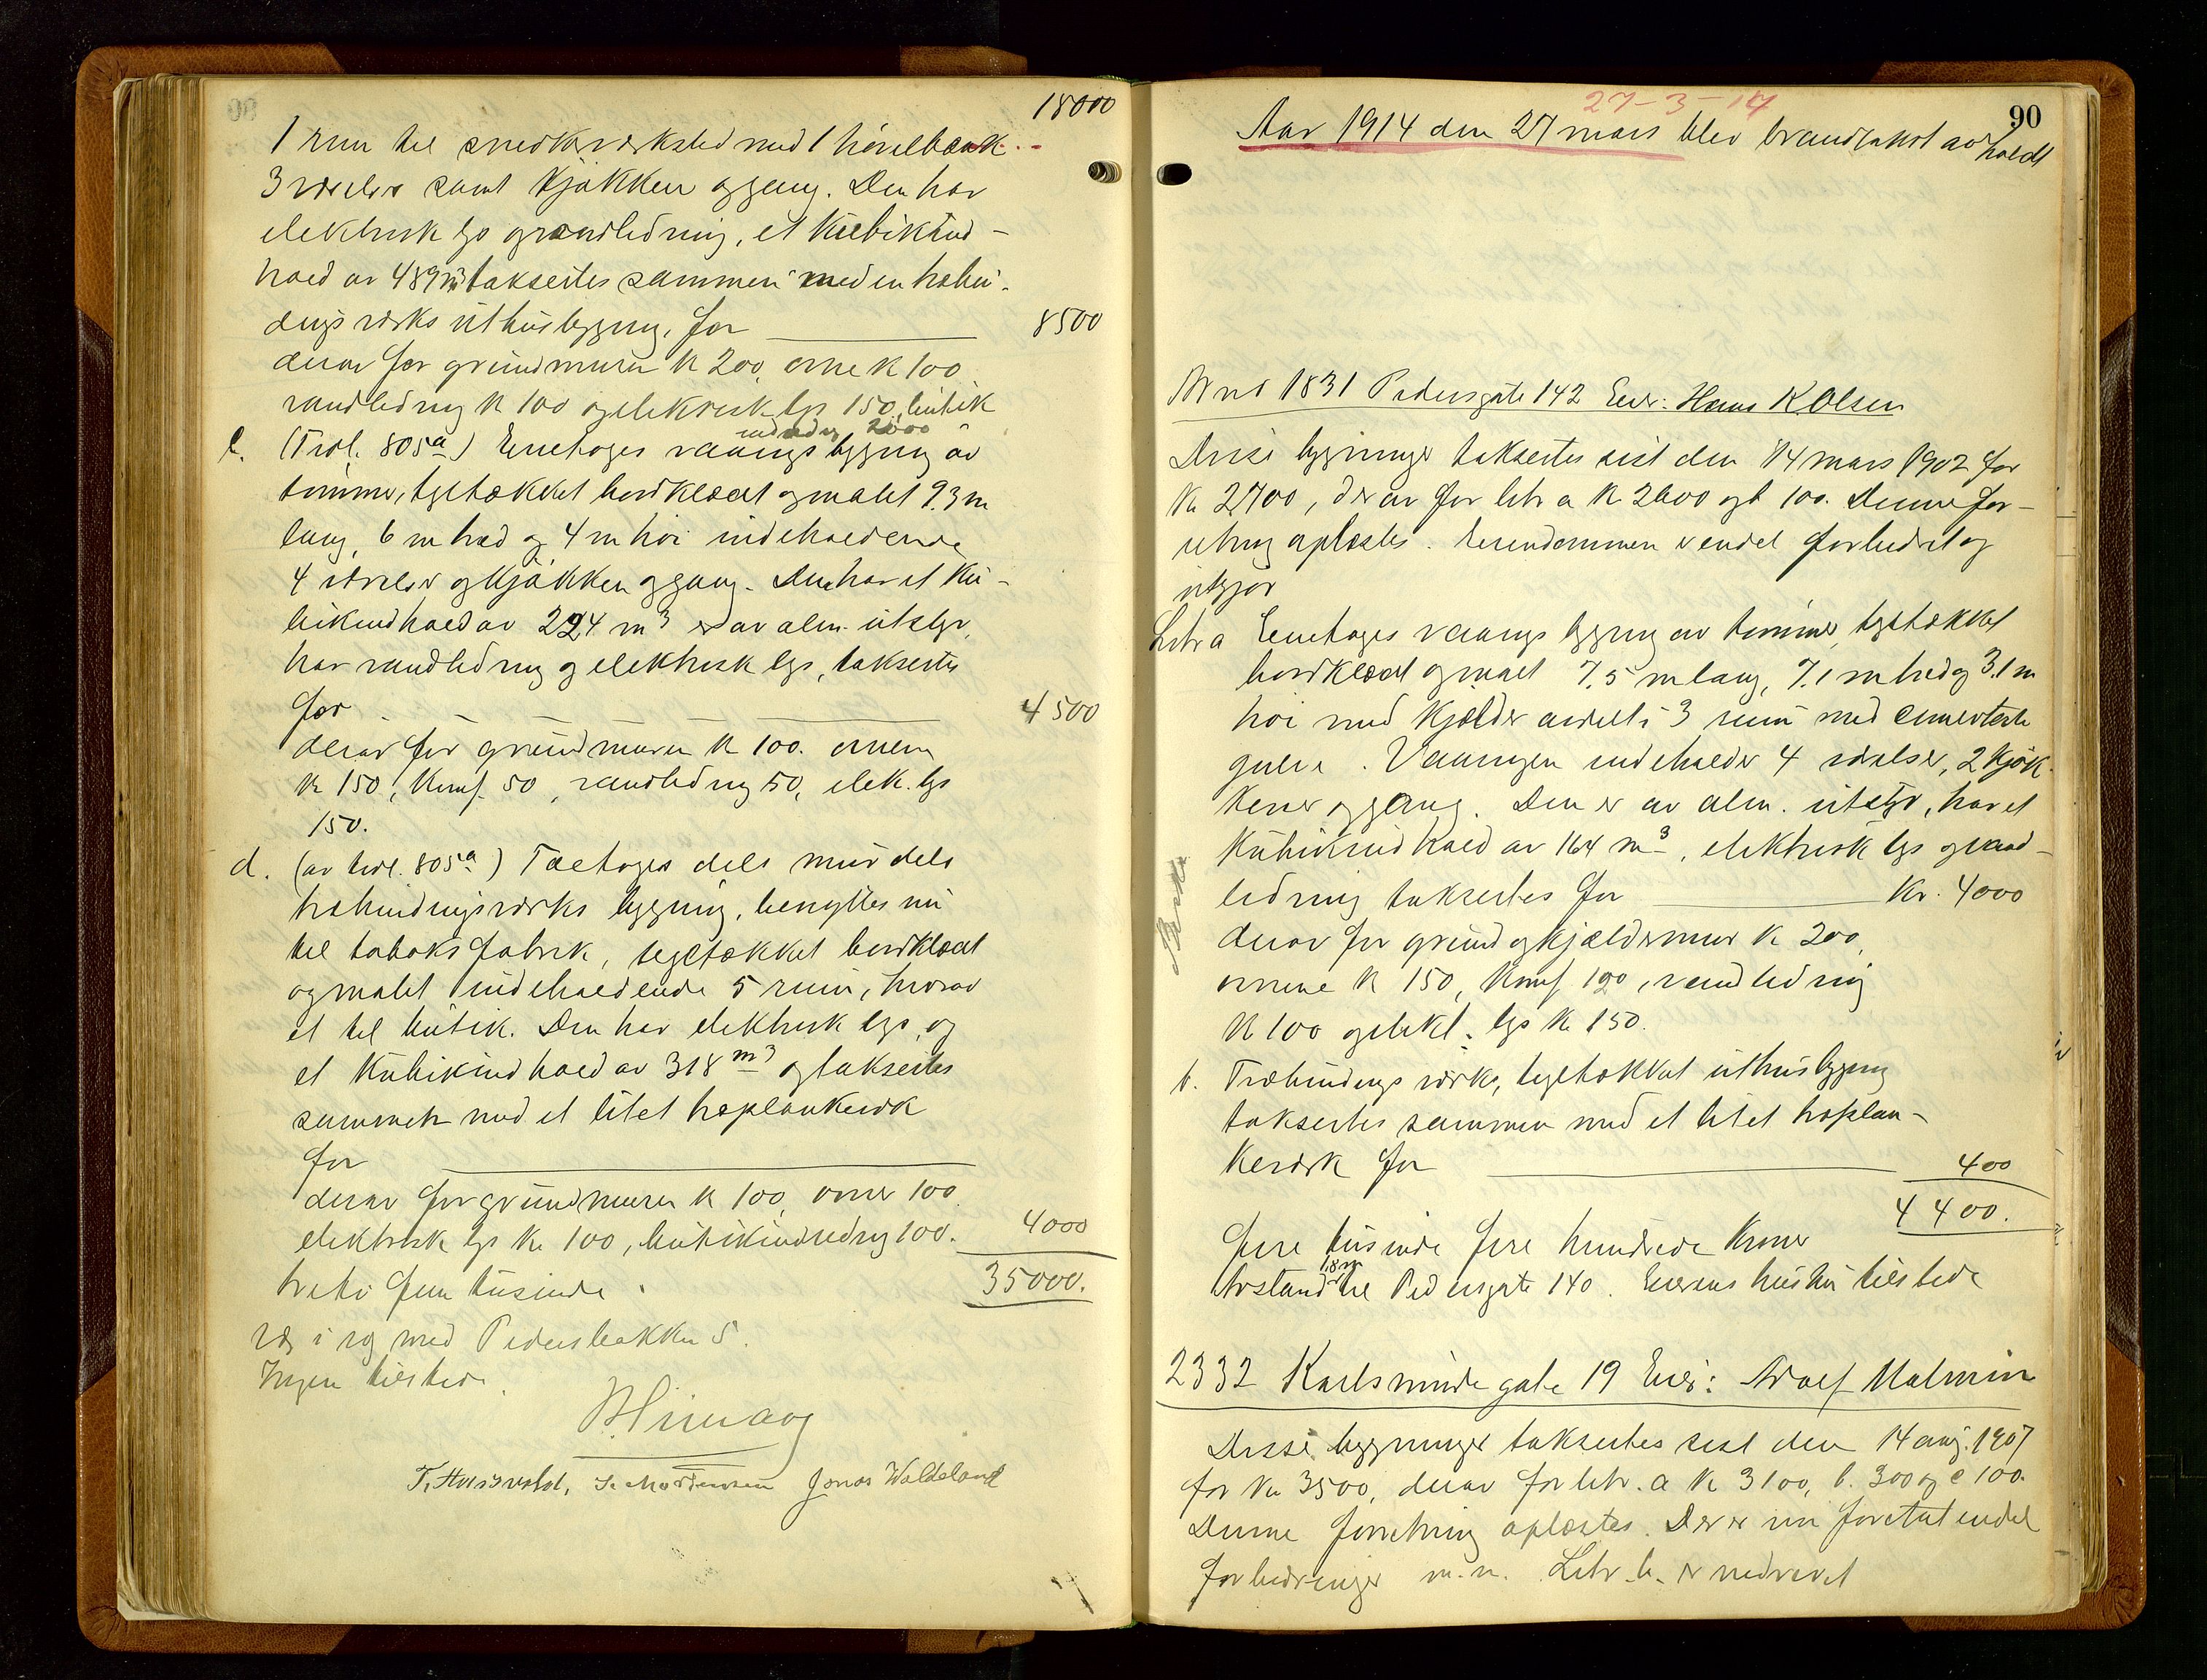 18000
1 rum til snedkerværksted med 1 høvelbænk
3 værelser samt kjøkken og gang. Den har
elektrisk lys og vandledning, et kubikind-
hold av 489 m3 taksertes sammen med en træbin-
dingsverks uthusbygning, for 8500
derav for grundmuren k 200, ovne k 100
vandledning k 100 og elektrisk lys 150, butik
indredn 2000
c. (Tidl. 805a) Enetages vaaningsbygning av
tømmer, tegltækket bordklædt og malet 9.3 m
lang, 6 m bred og 4 m høi indeholdende
4 værelser og kjøkken og gang. Den har et ku-
bikindhold av 224 m3 er av alm. utstyr,
har vandledning og elektrisk lys, taksertes
for 4500
derav for grundmuren k 100. ovnene
k 150, komf. 50, vandledning 50, elek. lys
150.
d. (av tidl. 805a) Toetages dels mur dels
træbindingsverks bygning, benyttes nu
til tobaksfabrik, tegltækket bordklædt
og malet indeholdende 5 rum, hvorav
et til butik. Den har elektrisk lys, og
et kubikindhold av 318 m3 og taksertes
sammen med et litet træplankeverk
for
derav for grundmuren k 100, ovner 100
elektrisk lys kr 100, butikindredng 100. 4000
treti fem tusinde 35000.
Væg i væg med Pedersbakken 5.
Ingen tilstede.
T. Mortensen Jonas Waldeland
90
27-3-14
Aar 1914 den 27 mars blev brandtakst av-
holdt
Br no 1831 Pedersgate 142 Eier: Hans K Olsen
Disse bygninger taksertes sist den 14 mars 1902 for
Kr 2700, derav for litr a kr 2600 og b 100. Denne for-
retning oplæstes. Eiendommen er endel forbedret og
utgjør
Litr a Enetages vaaningsbygning av tømmer, tegltækket
bordklædt og malt 7.5 m lang, 7.1 m bred og 3.1 m
høi med kjælder avdelt i 3 rum med cementerte
gulve. Vaaningen indeholder 4 værelser, 2 kjøk-
kener og gang. Den er av alm. utstyr, har et
kubikindhold av 164 m3, elektrisk lys og vand-
ledning taksertes for Kr. 4000
derav for grund og kjældermur k 200,
ovnene k 150, Komf 120, vandledning
k 100 og elekt. lys kr 150.
b. Træbindingsverks, tegltækket uthusbygning
taksertes sammen med et litet træplan-
keverk for 400
4400.
fire tusinde fire hundrede kroner
1.8 m
Avstand til Pedersgate 140. Eierens hustru tilstede
2332 Karlsminde gate 19 Eier: Adolf Malmin
Disse bygninger taksertes sist den 14 aug. 1907
for kr 3500, derav for litr. a k 3100, b. 300 og c 100.
Denne forretning oplæstes. Der er nu foretat endel
forbedringer m.v. Litr. b. er nedrevet